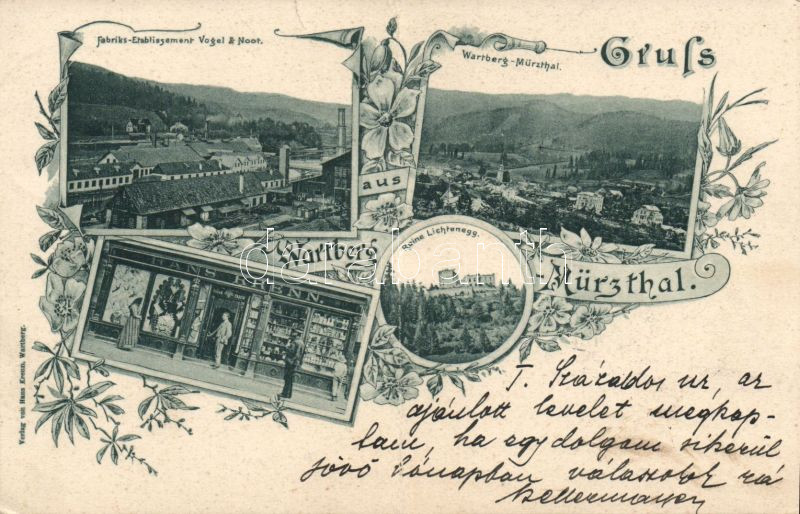 Fabriks-Etablissement Vogel & Noot.
Wartberg-Mürzthal.
Gruſs
aus
Wartberg
Mürzthal.
Ruine Lichtenegg.
HANS KRENN.
Verlag von Hans Krenn, Wartberg.
darabanth
T. Százados ur, az
ajánlott levelet megkap-
tam, ha egy dolgom sikerül
jövő hónapban válaszolok rá
Kellermayer